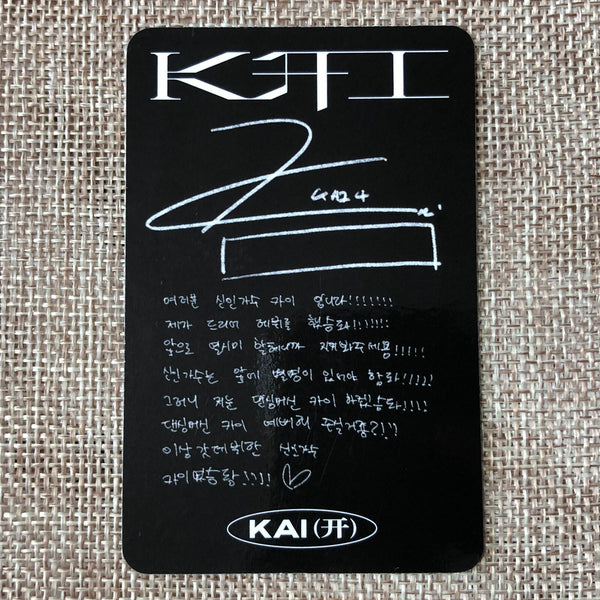 KAI
여러분 신인가수 카이 입니다!!!!!!!
제가 드디어 데뷔를 했습니다!!!!!!!
앞으로 열시미 할테니까 지켜봐주세용!!!!!
신인가수는 앞에 별명이 있어야 한다!!!!!
그러니 저는 댄싱머신 카이 하겠습니다!!!!
댄싱머신 카이 예뻐해 주실거죵?!?
이상 갓데뷔한 신인가수
카이였습니당!!!! ♡
KAI(开)